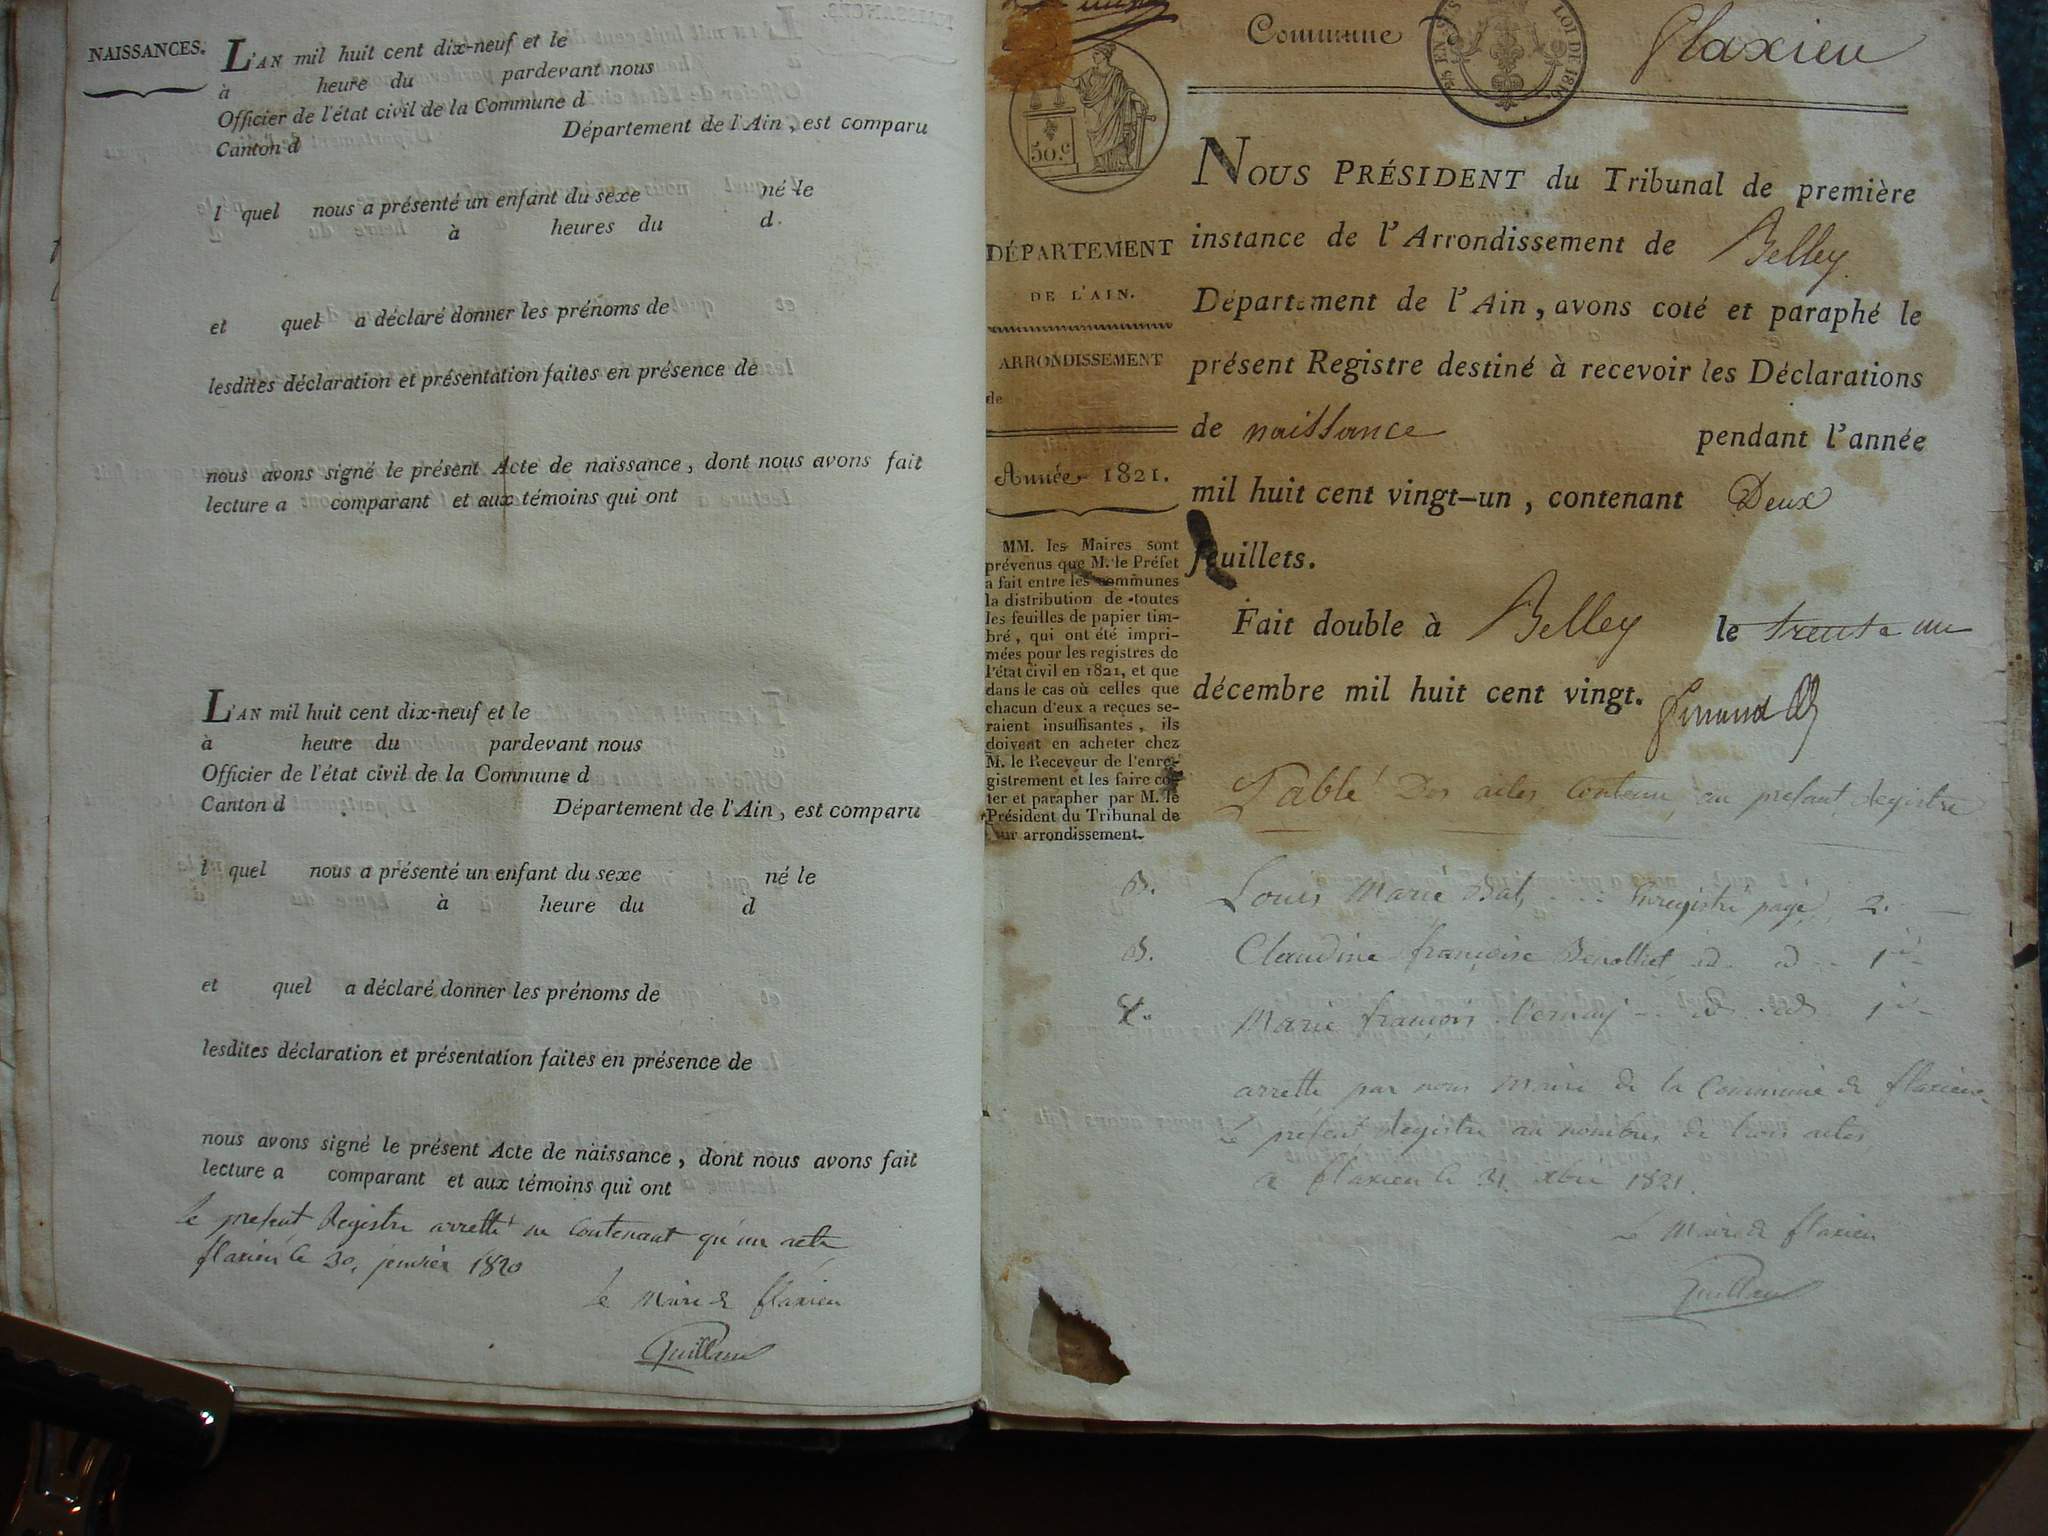 NAISSANCES.
L'AN mil huit cent dix-neuf et le
à heure du pardevant nous
Officier de l'état civil de la Commune d
Canton d Département de l'Ain, est comparu
l quel nous a présenté un enfant du sexe né le
à heures du d
et quel a déclaré donner les prénoms de
lesdites déclaration et présentation faites en présence de
nous avons signé le présent Acte de naissance, dont nous avons fait
lecture a comparant et aux témoins qui ont
L'AN mil huit cent dix-neuf et le
à heure du pardevant nous
Officier de l'état civil de la Commune d
Canton d Département de l'Ain, est comparu
l quel nous a présenté un enfant du sexe né le
à heure du d
et quel a déclaré donner les prénoms de
lesdites déclaration et présentation faites en présence de
nous avons signé le présent Acte de naissance, dont nous avons fait
lecture a comparant et aux témoins qui ont
Le present Registre arretté ne contenant qu'un acte
flaxieu le 30, janvier 1820
Le Maire de flaxieu
Guilland
Commune Flaxieu
LOI DE 1816
50.c
DÉPARTEMENT
DE L'AIN.
ARRONDISSEMENT
de
Année 1821.
MM. les Maires sont
prévenus que M. le Préfet
a fait entre les communes
la distribution de toutes
les feuilles de papier tim-
bré, qui ont été impri-
mées pour les registres de
l'état civil en 1821, et que
dans le cas où celles que
chacun d'eux a reçues se-
raient insuffisantes, ils
doivent en acheter chez
M. le Receveur de l'enre-
gistrement et les faire co-
ter et parapher par M. le
Président du Tribunal de
leur arrondissement.
NOUS PRÉSIDENT du Tribunal de première
instance de l'Arrondissement de Belley
Département de l'Ain, avons coté et paraphé le
présent Registre destiné à recevoir les Déclarations
de naissance pendant l'année
mil huit cent vingt-un, contenant Deux
feuillets.
Fait double à Belley le trente un
décembre mil huit cent vingt.
Table Des actes Contenu au present Registre
Louis Marie Enregistré page 2.
Claudine françoise 1
Marie françois 1
arretté par nous Maire de la Commune de flaxieu
Le present Registre au nombre de trois actes
a flaxieu le 31 xbre 1821.
Le Maire de flaxieu
Guilland